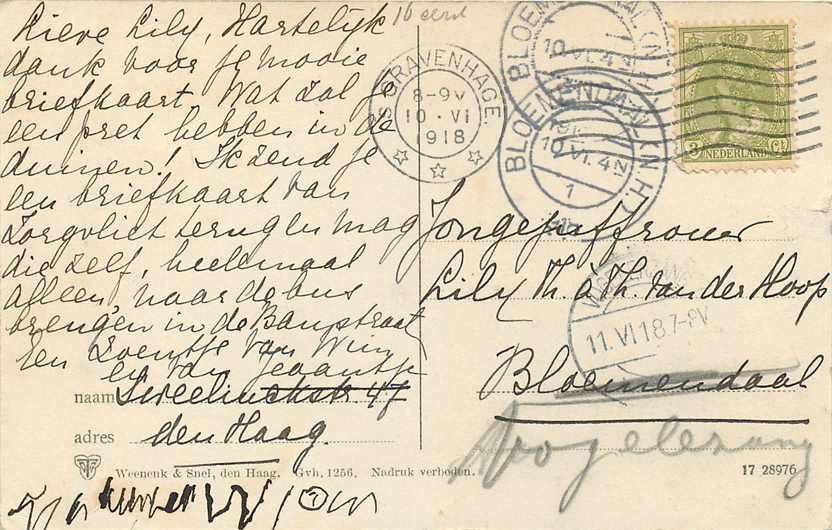 Lieve Lily, Hartelijk
dank voor je mooie
briefkaart. Wat zal je
een pret hebben in de
duinen! Ik zend je
een briefkaart van
Zorgvliet terug en mag
die zelf, heelemaal
alleen, naar de bus
brengen in de Banstraat
Een zoentje van Wim
en van Jeaantje
naam Sweelinckstr. 47
adres den Haag.
Weenenk & Snel, den Haag. Gvh. 1256. Nadruk verboden.
'S GRAVENHAGE.
8-9V
10·VI
1918
BLOEMENDAAL (N.H.)
10.VI.4N
BLOEMENDAAL (N.H.)
10.VI.4N
1
3 NEDERLAND Ct
Jongejuffrouw
Lily Th. à Th. van der Hoop
11.VI.18.7-8V
Bloemendaal
Vogelenzang
17 28976